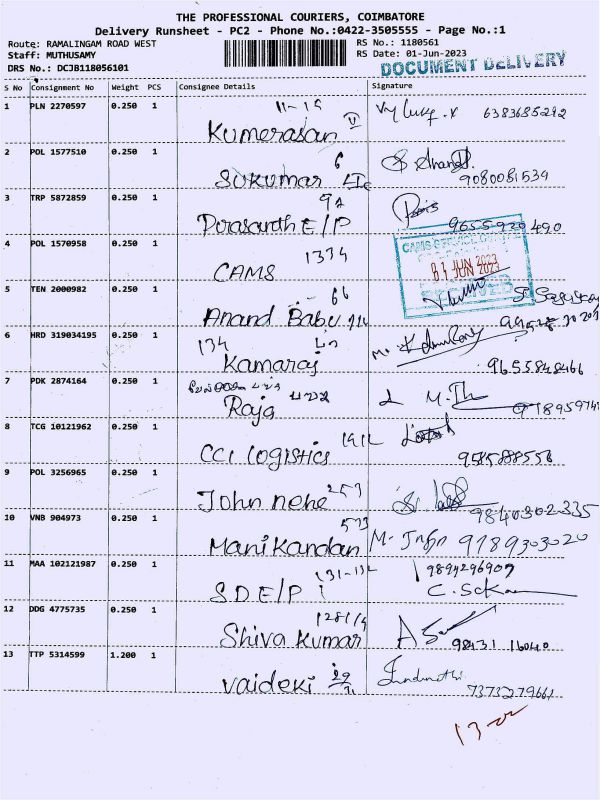 THE PROFESSIONAL COURIERS, COIMBATORE
Delivery Runsheet - PC2 - Phone No.:0422-3505555 - Page No.:1
Route: RAMALINGAM ROAD WEST
RS No.: 1180561
Staff: MUTHUSAMY
RS Date: 01-Jun-2023
DRS No.: DCJB118056101
DOCUMENT DELIVERY
S No Consignment No Weight PCS Consignee Details Signature
1 PLN 2270597 0.250 1
11-19
Kumerasan
6383685292
2 POL 1577510 0.250 1
6
Sukumar
9080081539
3 TRP 5872859 0.250 1
92
Perasardh E/P
9655920490
4 POL 1570958 0.250 1
1334
CAMS
01 JUN 2023
5 TEN 2000982 0.250 1
66
Anand Babu
6 HRD 319034195 0.250 1
134
Kamaraj
9655848466
7 PDK 2874164 0.250 1
Raja
8 TCG 10121962 0.250 1
CCI Logistics
9585888556
9 POL 3256965 0.250 1
253
John nehe
9840302335
10 VNB 904973 0.250 1
573
Manikandan
9789303020
11 MAA 102121987 0.250 1
131-132
S.D E/P
9894296909
12 DDG 4775735 0.250 1
Shiva Kumar
98431 16040
13 TTP 5314599 1.200 1
Vaideki
7373279661